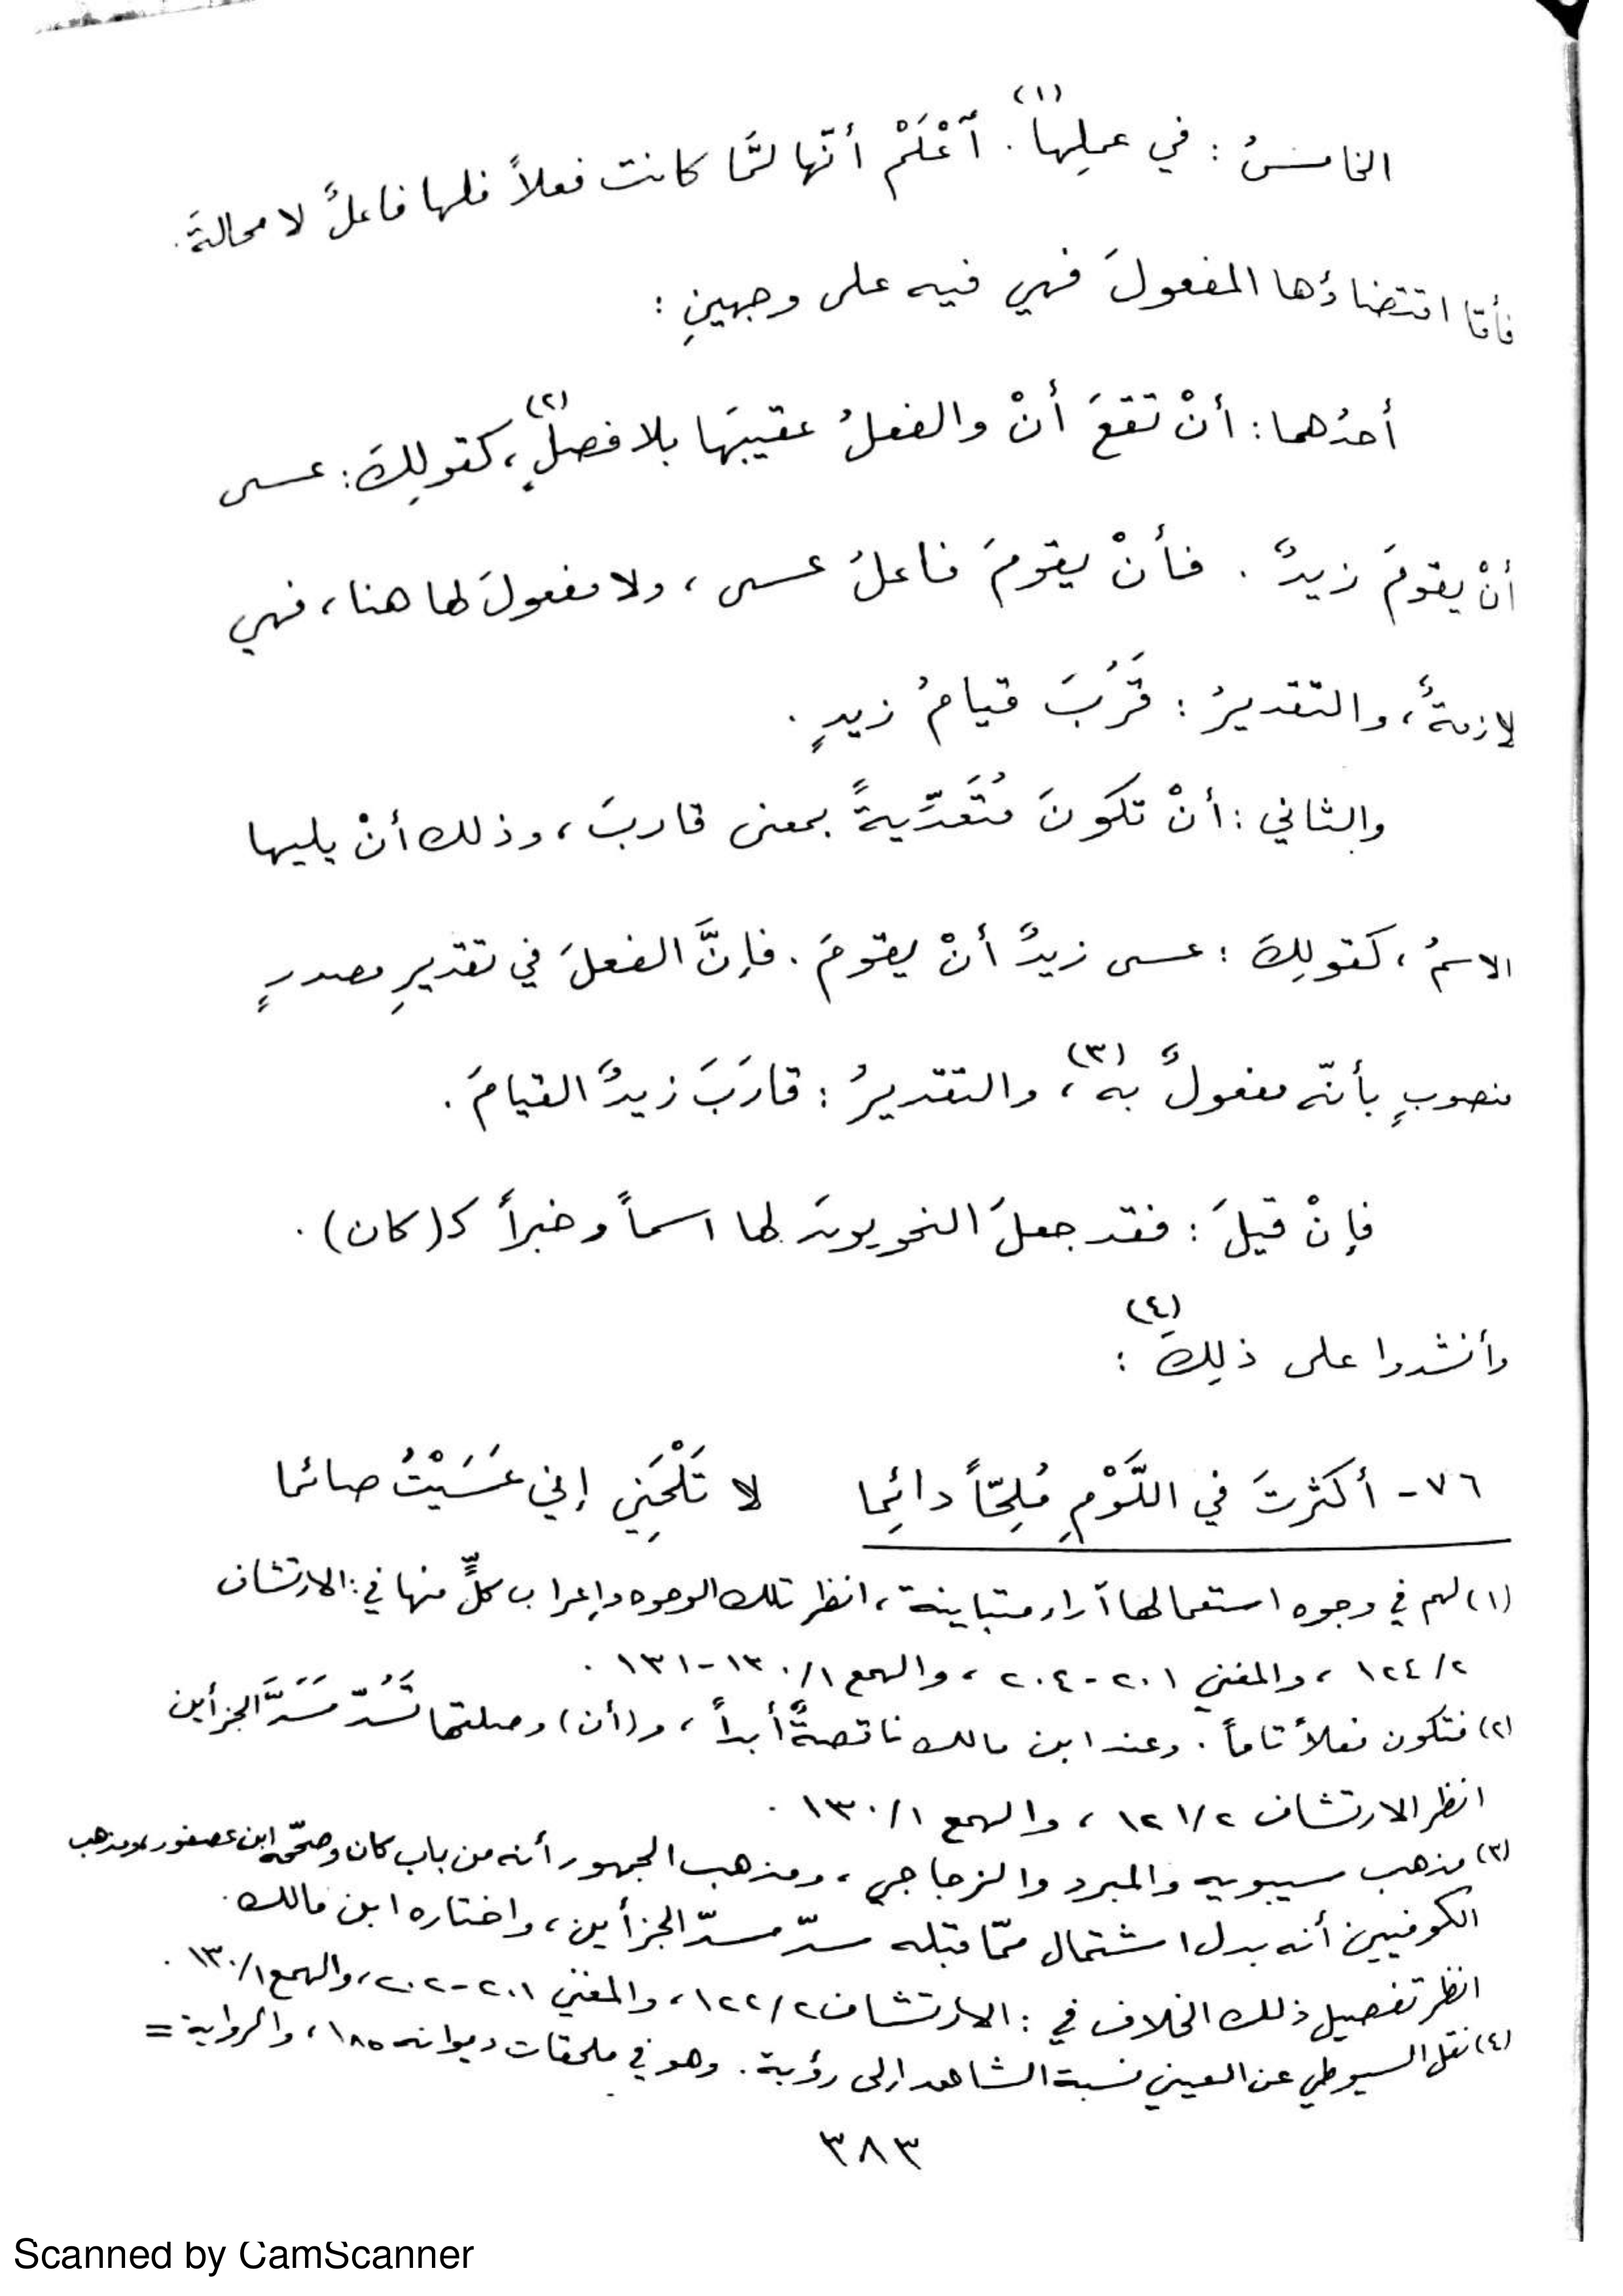 الخامسُ : في عملِها(١) . ٱعْلَمْ أنّها لمّا كانت فعلاً فلها فاعلٌ لا محالةَ .
فأمّا اقتضاؤها المفعولَ فهي فيه على وجهينِ :
أحدُهما : أنْ تقعَ أنْ والفعلُ عقيبَها بلا فصلٍ(٢) ، كقولِكَ : عسى
أنْ يقومَ زيدٌ . فأنْ يقومَ فاعلُ عسى ، ولا مفعولَ لها هنا ، فهي
لازمةٌ ، والتقديرُ : قَرُبَ قيامُ زيدٍ .
والثاني : أنْ تكونَ مُتَعَدِّيةً بمعنى قاربَ ، وذلك أنْ يليها
الاسمُ ، كقولِكَ : عسى زيدٌ أنْ يقومَ . فإنَّ الفعلَ في تقديرِ مصدرٍ
منصوبٍ بأنّه مفعولٌ به(٣) ، والتقديرُ : قارَبَ زيدٌ القيامَ .
فإنْ قيلَ : فقد جعلَ النحويون لها اسماً وخبراً كـ(كان) .
وأنشدوا على ذلِكَ(٤) :
٧٦ - أكثرتَ في اللَّوْمِ مُلِحّاً دائِما لا تَلْحَنِي إني عَسَيْتُ صائما
(١) لهم في وجوه استعمالها آراء متباينة ، انظر تلك الوجوه وإعراب كلٍّ منها في : الارتشاف
٢/ ١٢٤ ، والمغني ٢٠١ - ٢٠٤ ، والهمع ١/ ١٣٠ - ١٣١ .
(٢) فتكون فعلاً تاماً . وعند ابن مالك ناقصةً أبداً ، و(أن) وصلتها تَسُدّ مَسَدَّ الجزأين
انظر الارتشاف ٢/ ١٢١ ، والهمع ١/ ١٣٠ .
(٣) مذهب سيبويه والمبرد والزجاجي ، ومذهب الجمهور أنه من باب كان وصحّحه ابن عصفور ومذهب
الكوفيين أنه بدل اشتمال ممّا قبله سدّ مسدّ الجزأين ، واختاره ابن مالك .
انظر تفصيل ذلك الخلاف في : الارتشاف ٢/ ١٢٢ ، والمغني ٢٠١ - ٢٠٢ ، والهمع ١/ ١٣٠ .
(٤) نقل السيوطي عن العيني نسبة الشاهد إلى رؤبة . وهو في ملحقات ديوانه ١٨٥ ، والرواية =
٣٨٣
Scanned by CamScanner